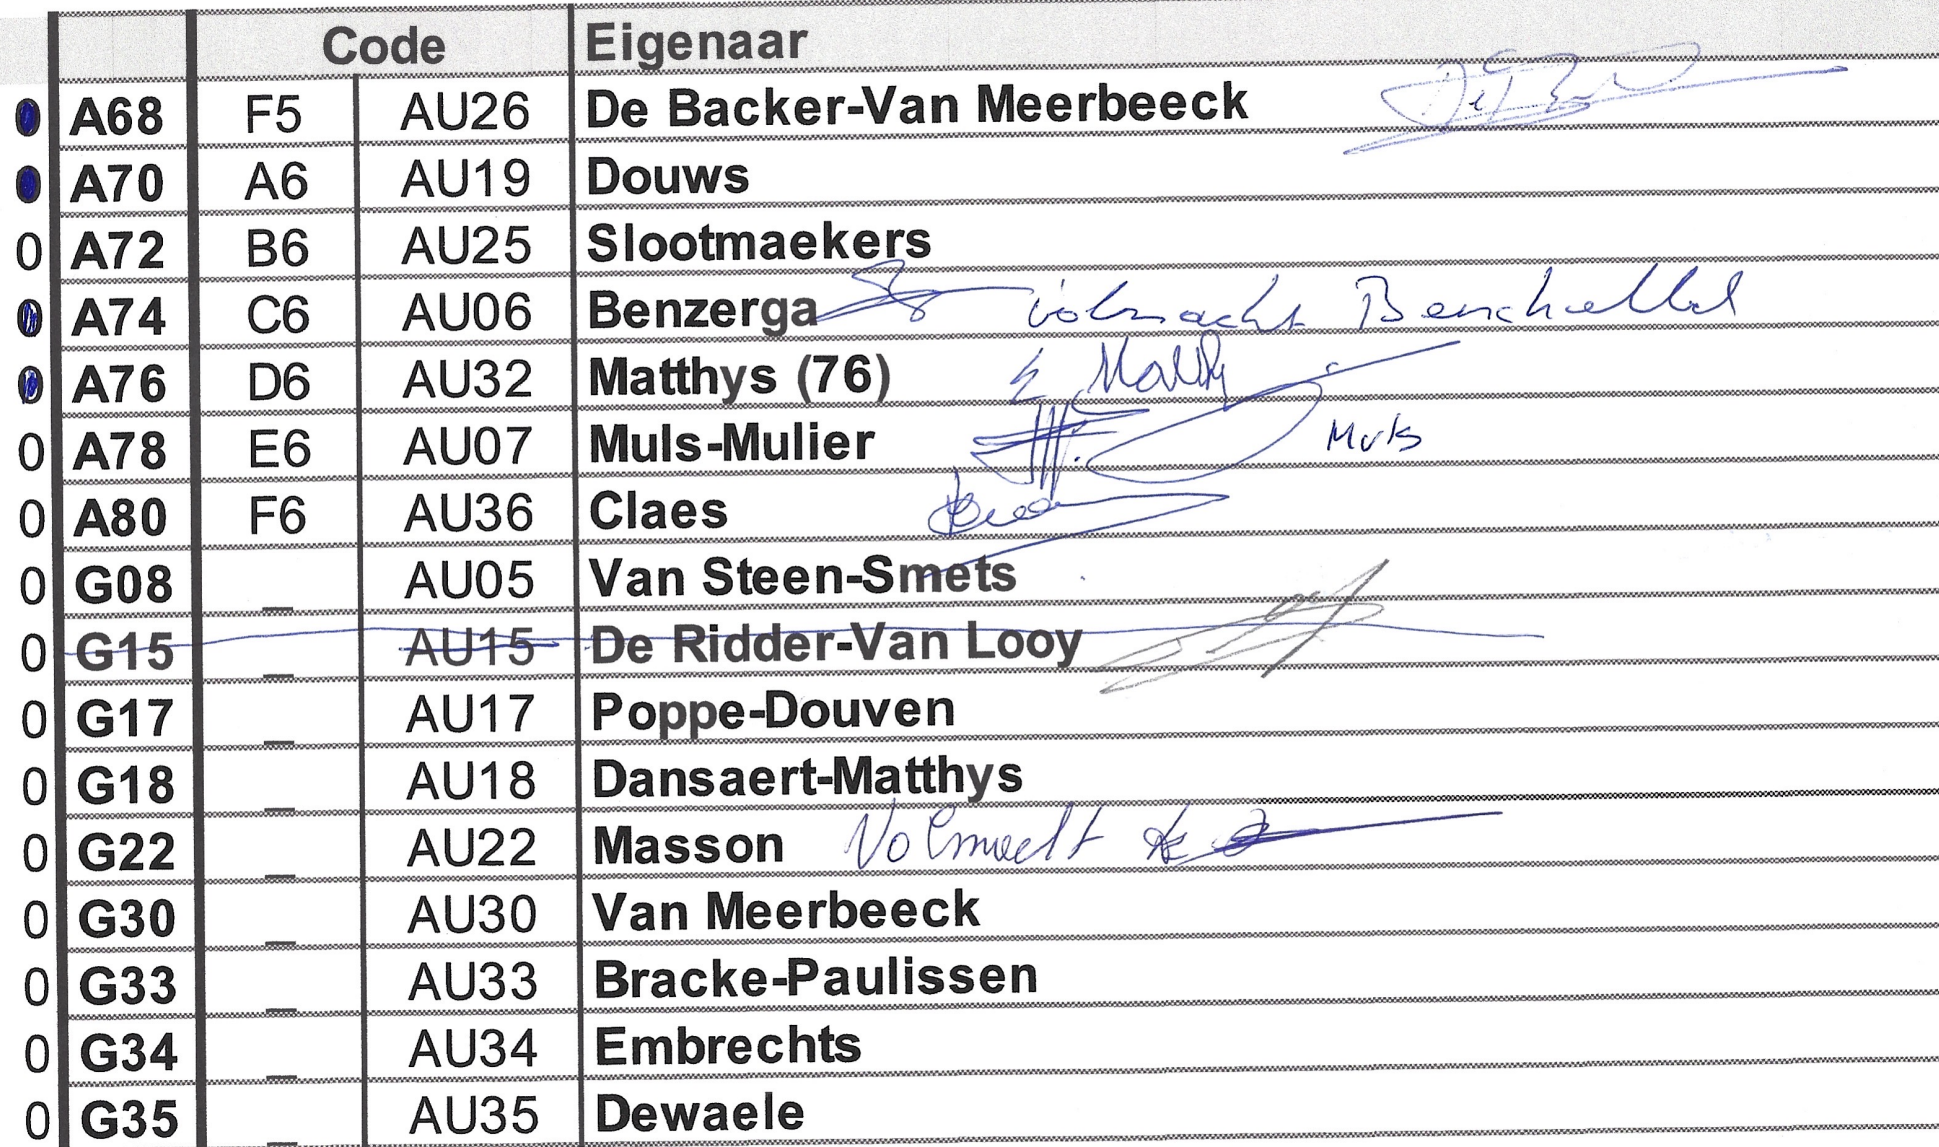 Code Eigenaar
0 A68 F5 AU26 De Backer-Van Meerbeeck
0 A70 A6 AU19 Douws
0 A72 B6 AU25 Slootmaekers
0 A74 C6 AU06 Benzerga volmacht
0 A76 D6 AU32 Matthys (76)
0 A78 E6 AU07 Muls-Mulier Muls
0 A80 F6 AU36 Claes
0 G08 _ AU05 Van Steen-Smets
0 G15 _ AU15 De Ridder-Van Looy
0 G17 _ AU17 Poppe-Douven
0 G18 _ AU18 Dansaert-Matthys
0 G22 _ AU22 Masson Volmacht
0 G30 _ AU30 Van Meerbeeck
0 G33 _ AU33 Bracke-Paulissen
0 G34 _ AU34 Embrechts
0 G35 _ AU35 Dewaele